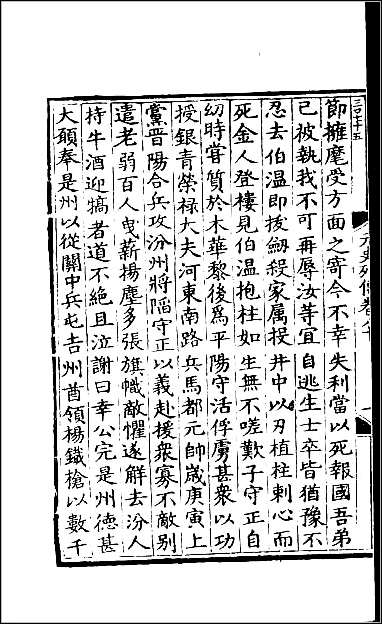 三百七十五
元史列傳卷八十
節擁麾受方面之寄今不幸失利當以死報國吾弟
已被執我不可再辱汝等宜自逃生士卒皆猶豫不
忍去伯温即拔劒殺家屬投井中以刃植柱刺心而
死金人登樓見伯温抱柱如生無不嗟歎子守正自
幼時嘗質於木華黎後爲平陽守活俘虜甚衆以功
授銀青榮祿大夫河東南路兵馬都元帥歲庚寅上
黨晋陽合兵攻汾州將䧟守正以義赴援衆寡不敵别
遣老弱百人曳薪揚塵多張旗幟敵懼遂解去汾人
持牛酒迎犒者道不絶且泣謝曰幸公完是州德甚
大願奉是州以從關中兵屯吉州酋領楊鐵槍以數千